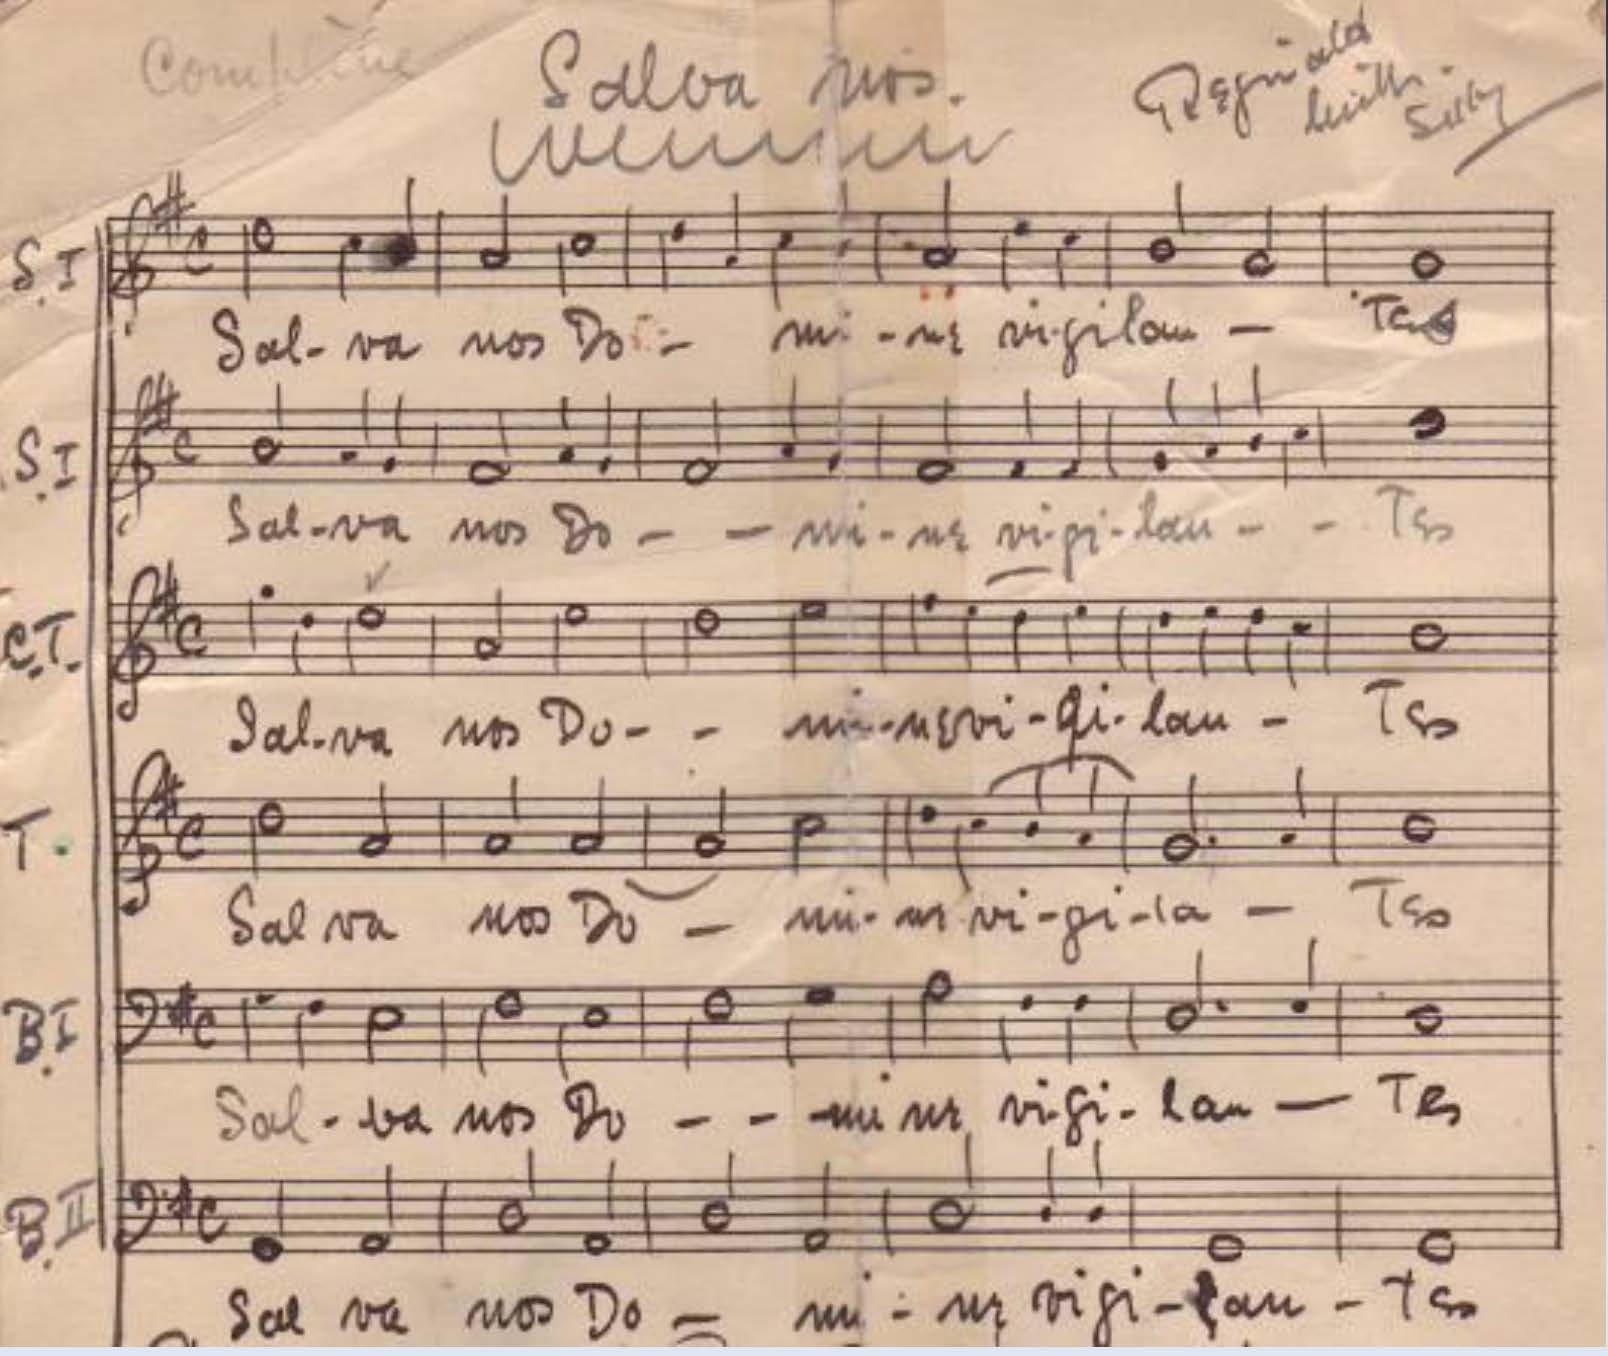 Complène
Salva nos.
Reginald
Smith
S.I
Sal- va nos Do - mi - ne vigilan - Tes
S.I
Sal-va nos Do - - mi - ne vi-gi-lan - - Tes
C.T.
Sal-va nos Do - - mi-ne vi-gi-lan - Tes
T.
Sal va nos Do - mi-ne vi-gi-la - Tes
B.I
Sal - va nos Do - - - mi ne vi-gi-lan - Tes
B.II
Sal va nos Do - mi - ne vigi-lan - Tes